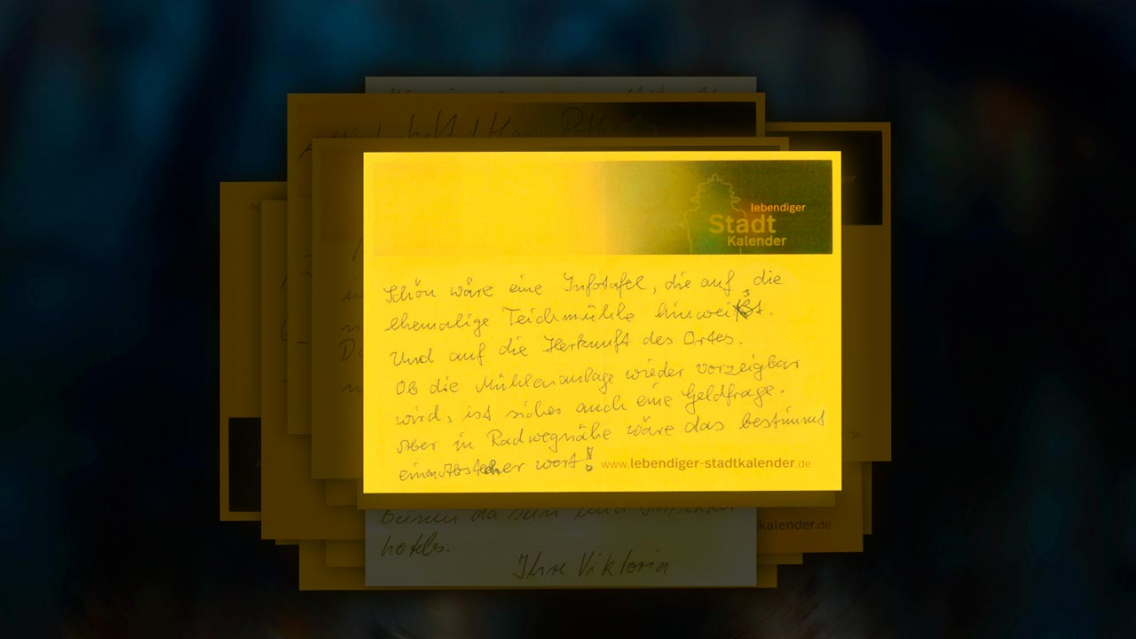 lebendiger
Stadt
Kalender
Schön wäre eine Infotafel, die auf die
ehemalige Teichmühle hinweißt.
Und auf die Herkunft des Ortes.
Ob die Mühlenanlage wieder vorzeigbar
wird, ist sicher auch eine Geldfrage.
Aber in Radwegnähe wäre das bestimmt
einen Abstecher wert!
www.lebendiger-stadtkalender.de
kalender.de
hotels.
Ihre Viktoria